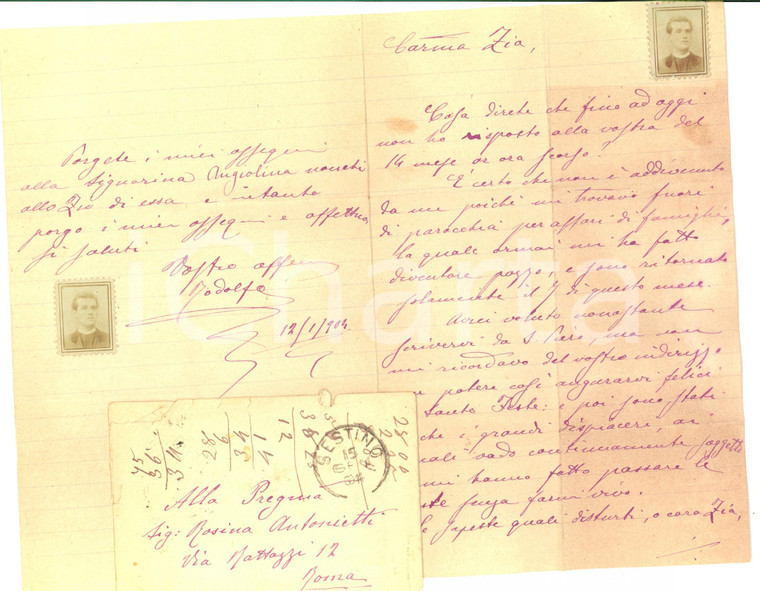 Carma Zia,
Cosa direte che fino ad oggi
non ho risposto alla vostra del
14 mese or ora scorso?
È certo che non è addivenuto
da me poichè mi trovavo fuori
di parocchia per affari di famiglia,
la quale ormai mi ha fatto
diventare pazzo, e sono ritornato
solamente il 7 di questo mese.
Avrei voluto nonostante
scrivervi da S. Piero, ma non
mi ricordavo del vostro indirizzo
potere così augurarvi felici
Sante Feste: e poi sono stati
che i grandi dispiaceri, ai
quali vado continuamente soggetto
mi hanno fatto passare le
senza farmi vivo.
sapeste quali disturbi, o cara Zia,
Porgete i miei ossequi
alla Signorina Angiolina nonché
allo Zio di essa, e intanto
porgo i miei ossequi e affettuo
si saluti
Vostro affm
Rodolfo
12/1/904.
SESTINO
15
04
Alla Pregma
Sig: Rosina Antonietti
Via Rattazzi 12
Roma